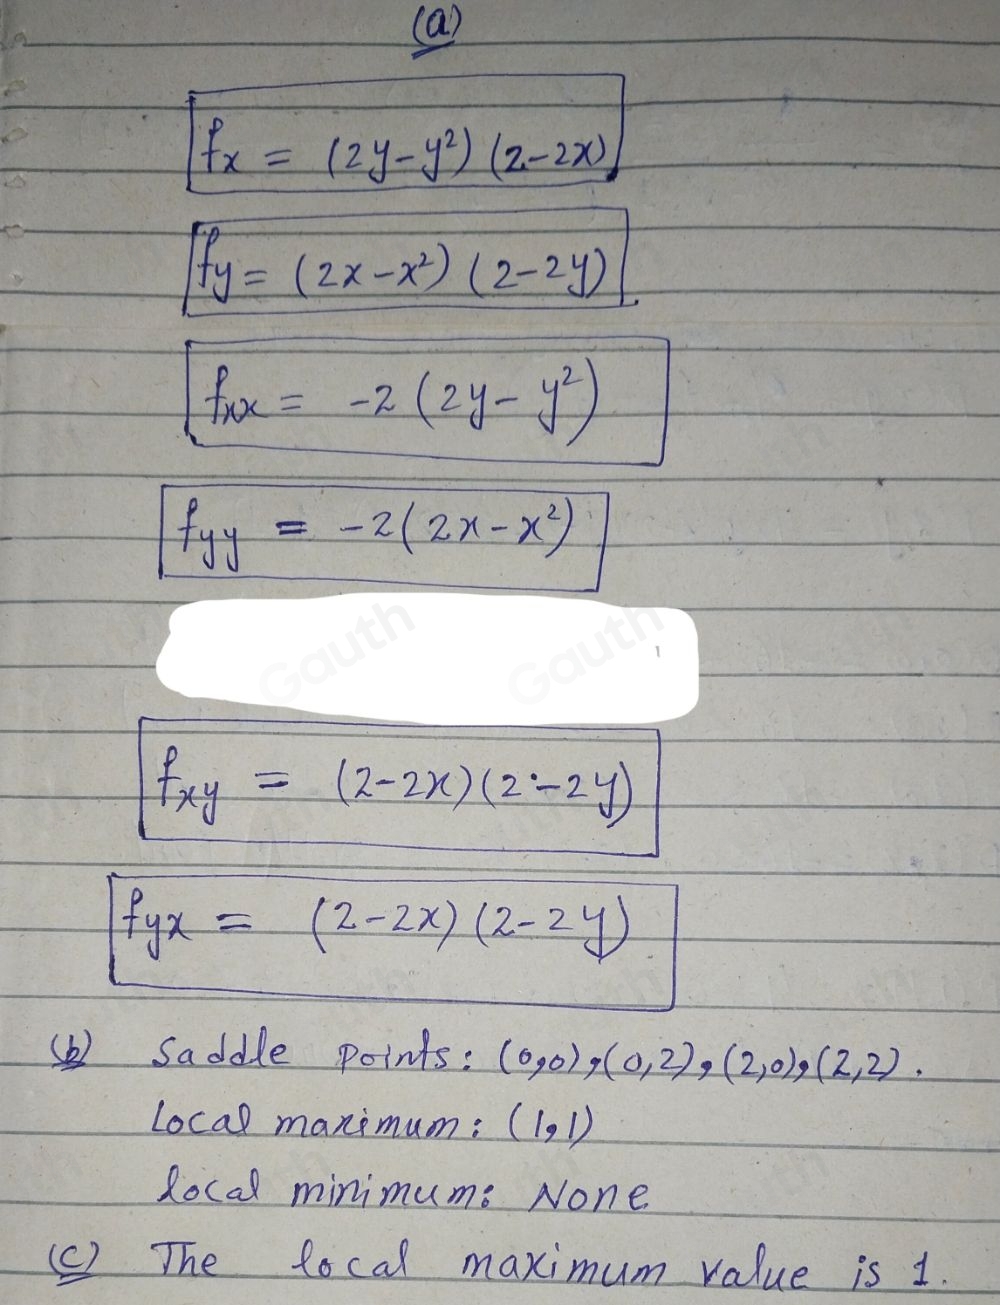 (a)
fx = (2y-y²) (2-2x)
fy = (2x-x²) (2-2y)
fxx = -2 (2y-y²)
fyy = -2(2x-x²)
Gauth Gauth
fxy = (2-2x)(2-2y)
fyx = (2-2x) (2-2y)
(b) Saddle points: (0,0), (0,2), (2,0), (2,2).
Local maximum: (1,1)
local minimum: None
(c) The local maximum value is 1.